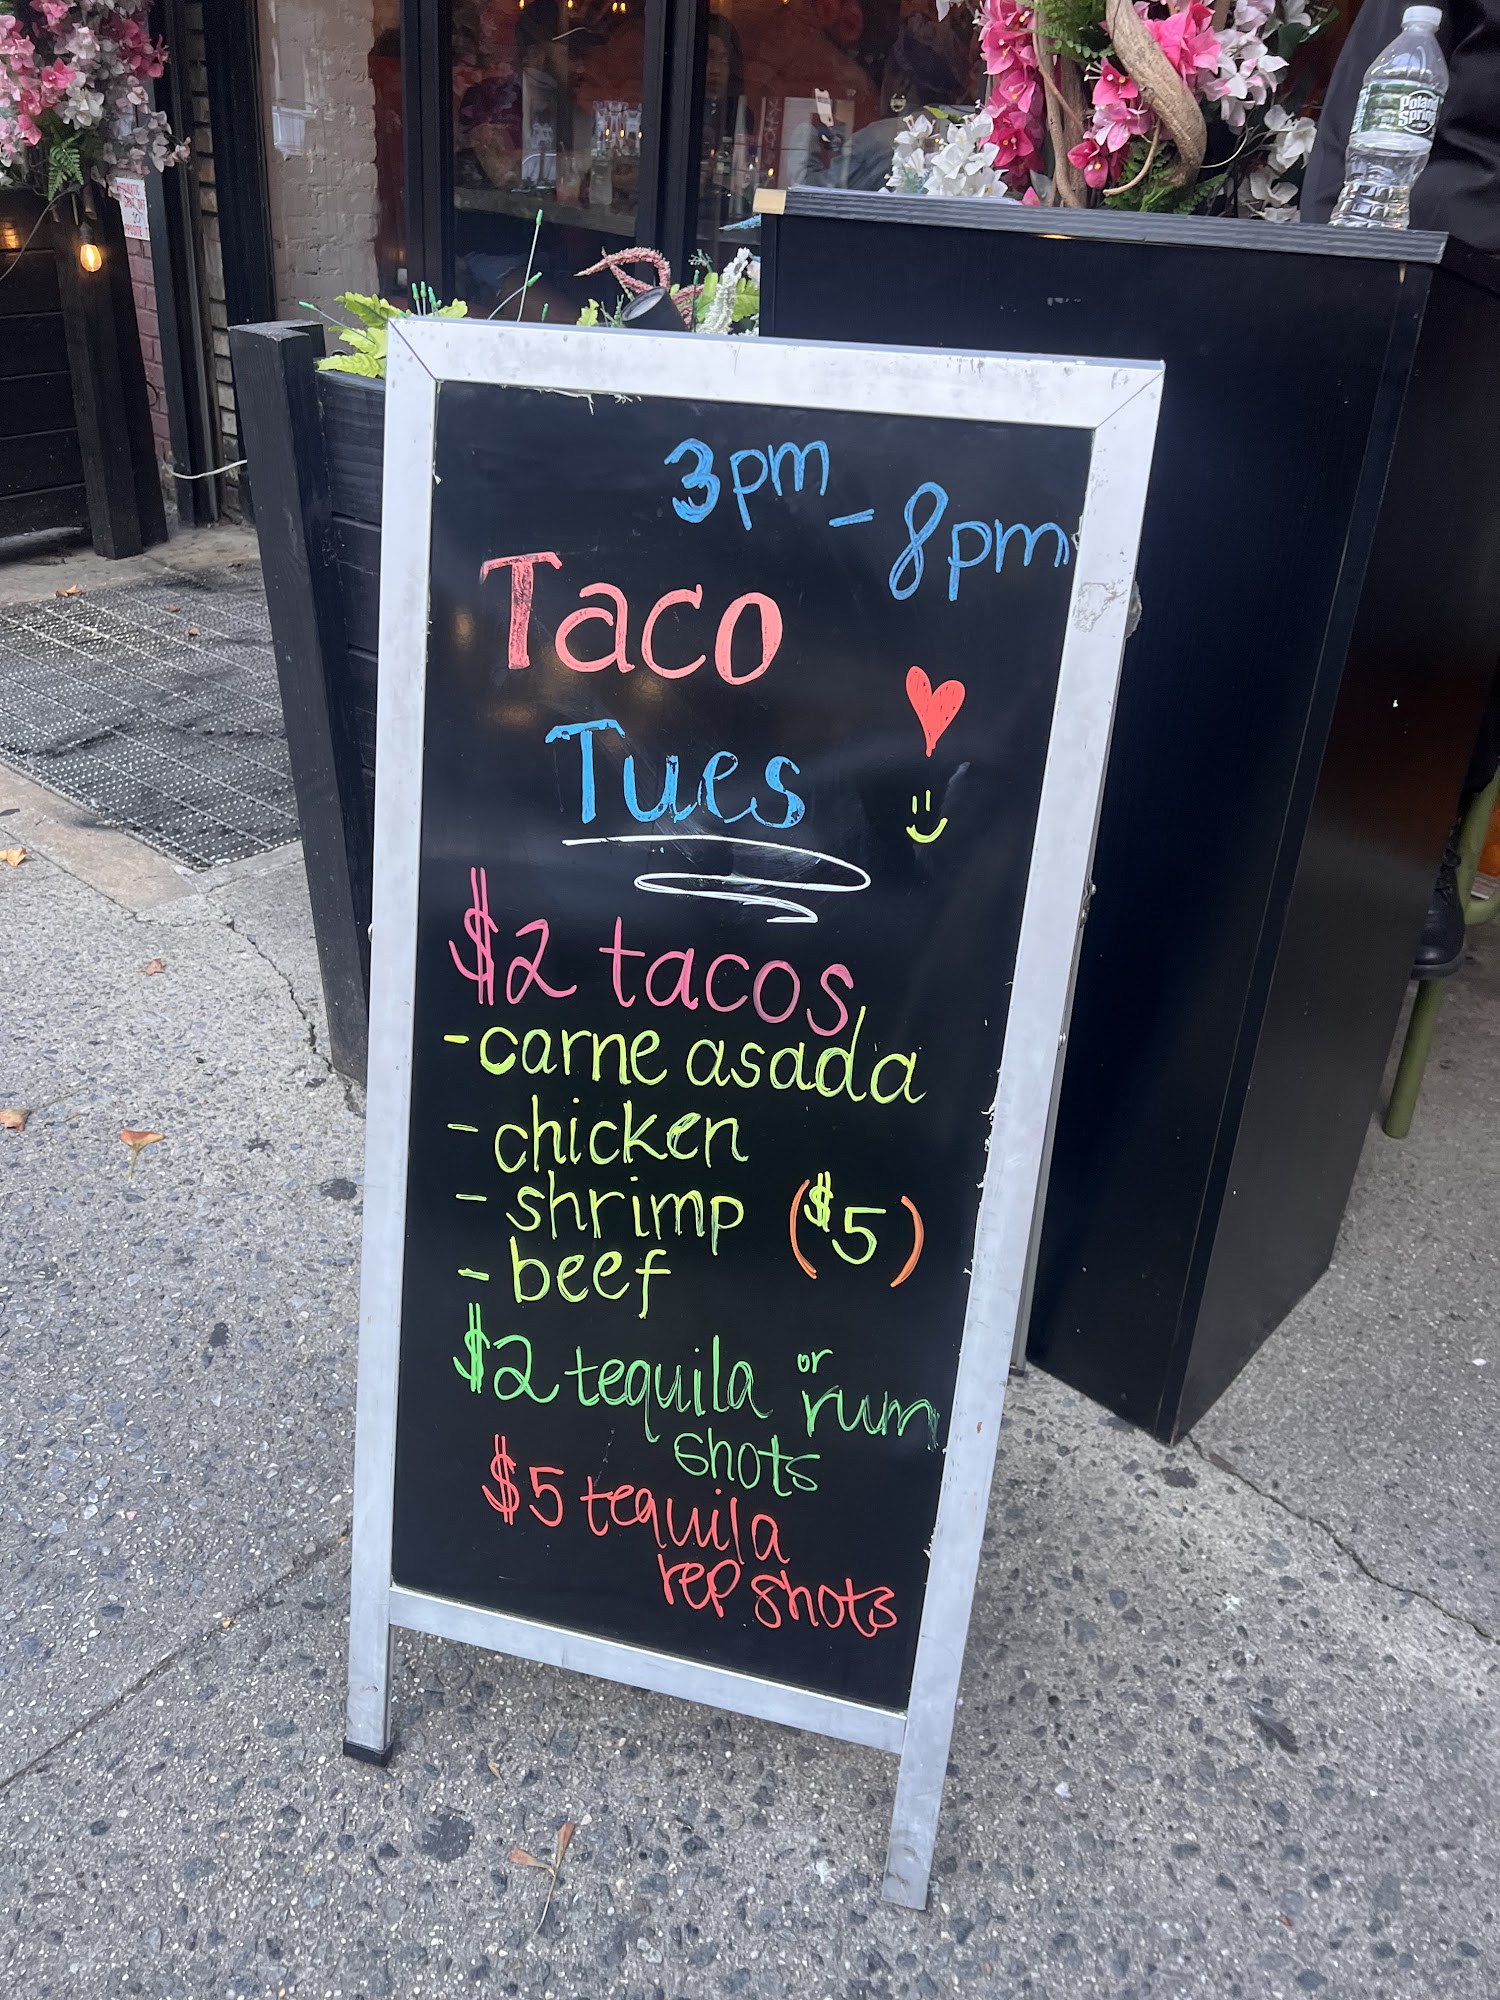 3pm - 8pm
Taco
Tues
$2 tacos
- carne asada
- chicken
- shrimp ($5)
- beef
$2 tequila or rum
shots
$5 tequila
rep shots
Poland
Spring